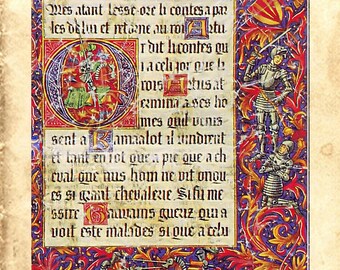 Mes atant lesse ore li contes a par
les de lui et retorne au roi Artu
r dit li contes qu
a celi por que li
rois Artus at
ermina a ses ho
mes quil venis
sent a Kamaalot il vindrent
et tant en tot que a pie que a che
val que nus hom ne vit onques
si grant chevalerie Si fu me
ssire Gauvains gueriz qui a
voit este malades si que a celui